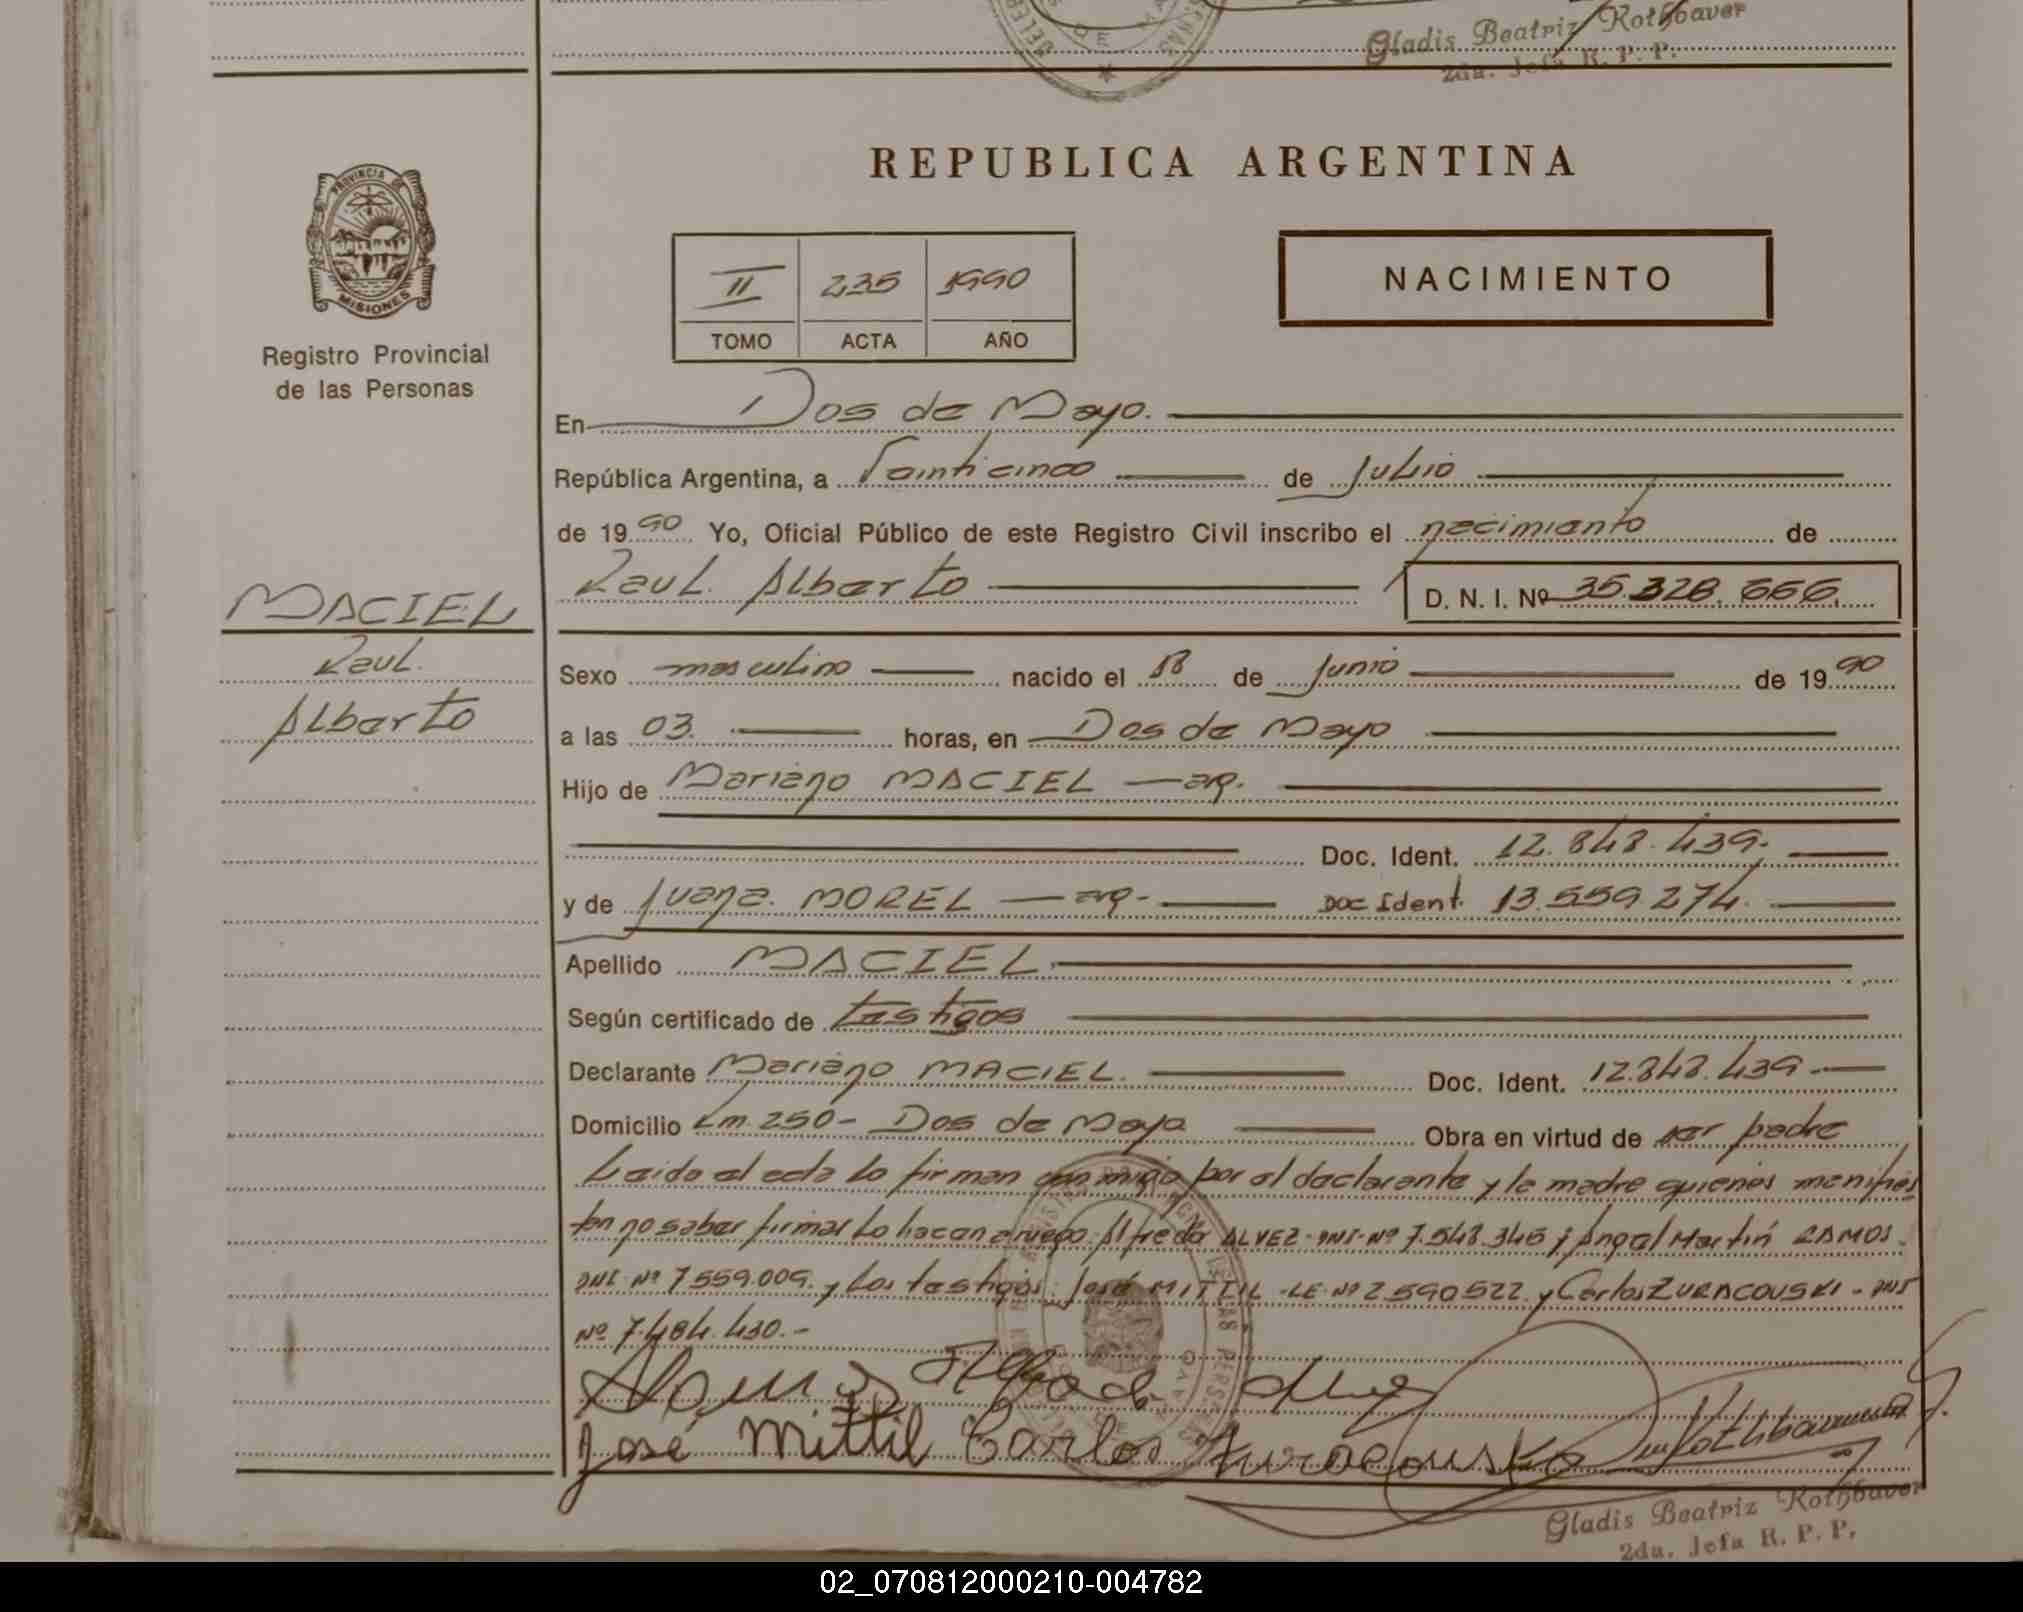 Gladis Beatriz Rothbaver
2da. Jefa R. P. P.
PROVINCIA DE
MISIONES
Registro Provincial
de las Personas
REPUBLICA ARGENTINA
II 235 1990
TOMO ACTA AÑO
NACIMIENTO
En Dos de Mayo.
República Argentina, a Veinticinco de Julio
de 1990 Yo, Oficial Público de este Registro Civil inscribo el nacimiento de
Raul Alberto D. N. I. Nº 35.328.666.
MACIEL
Raul.
Alberto
Sexo masculino nacido el 18 de Junio de 1990
a las 03. horas, en Dos de Mayo
Hijo de Mariano MACIEL — arg.
Doc. Ident. 12.848.439.
y de Juana MOREL — arg- Doc Ident. 13.559.274.
Apellido MACIEL
Según certificado de testigos
Declarante Mariano MACIEL. Doc. Ident. 12.848.439
Domicilio Km. 250 - Dos de Mayo Obra en virtud de ser padre
Leido el acta lo firman conmigo por el declarante y la madre quienes manifies
tan no saber firmar lo hacen a ruego: Alfredo ALVEZ - DNI- Nº 7.548.345 y Angel Martín RAMOS.
DNI Nº 7559.009. y los testigos: José MITTIL - LE Nº 2590522 y Carlos ZURACOUSKI - DNI
Nº 7.484.430.-
José Mittil Carlos Zuracousko
Gladis Beatriz Rothbaver
2da. Jefa R. P. P.
02_070812000210-004782